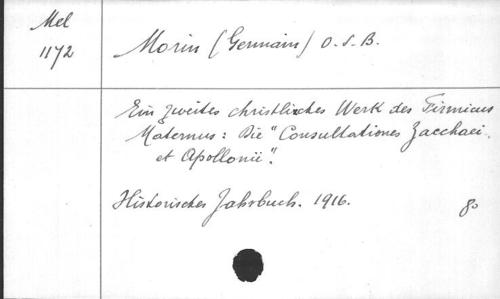 Mel
1172
Morin (Germain) O.S.B.
Ein zweites christliches Werk des Firmicus
Maternus: Die "Consultationes Zacchaei
et Apollonii".
Historisches Jahrbuch. 1916.
8o